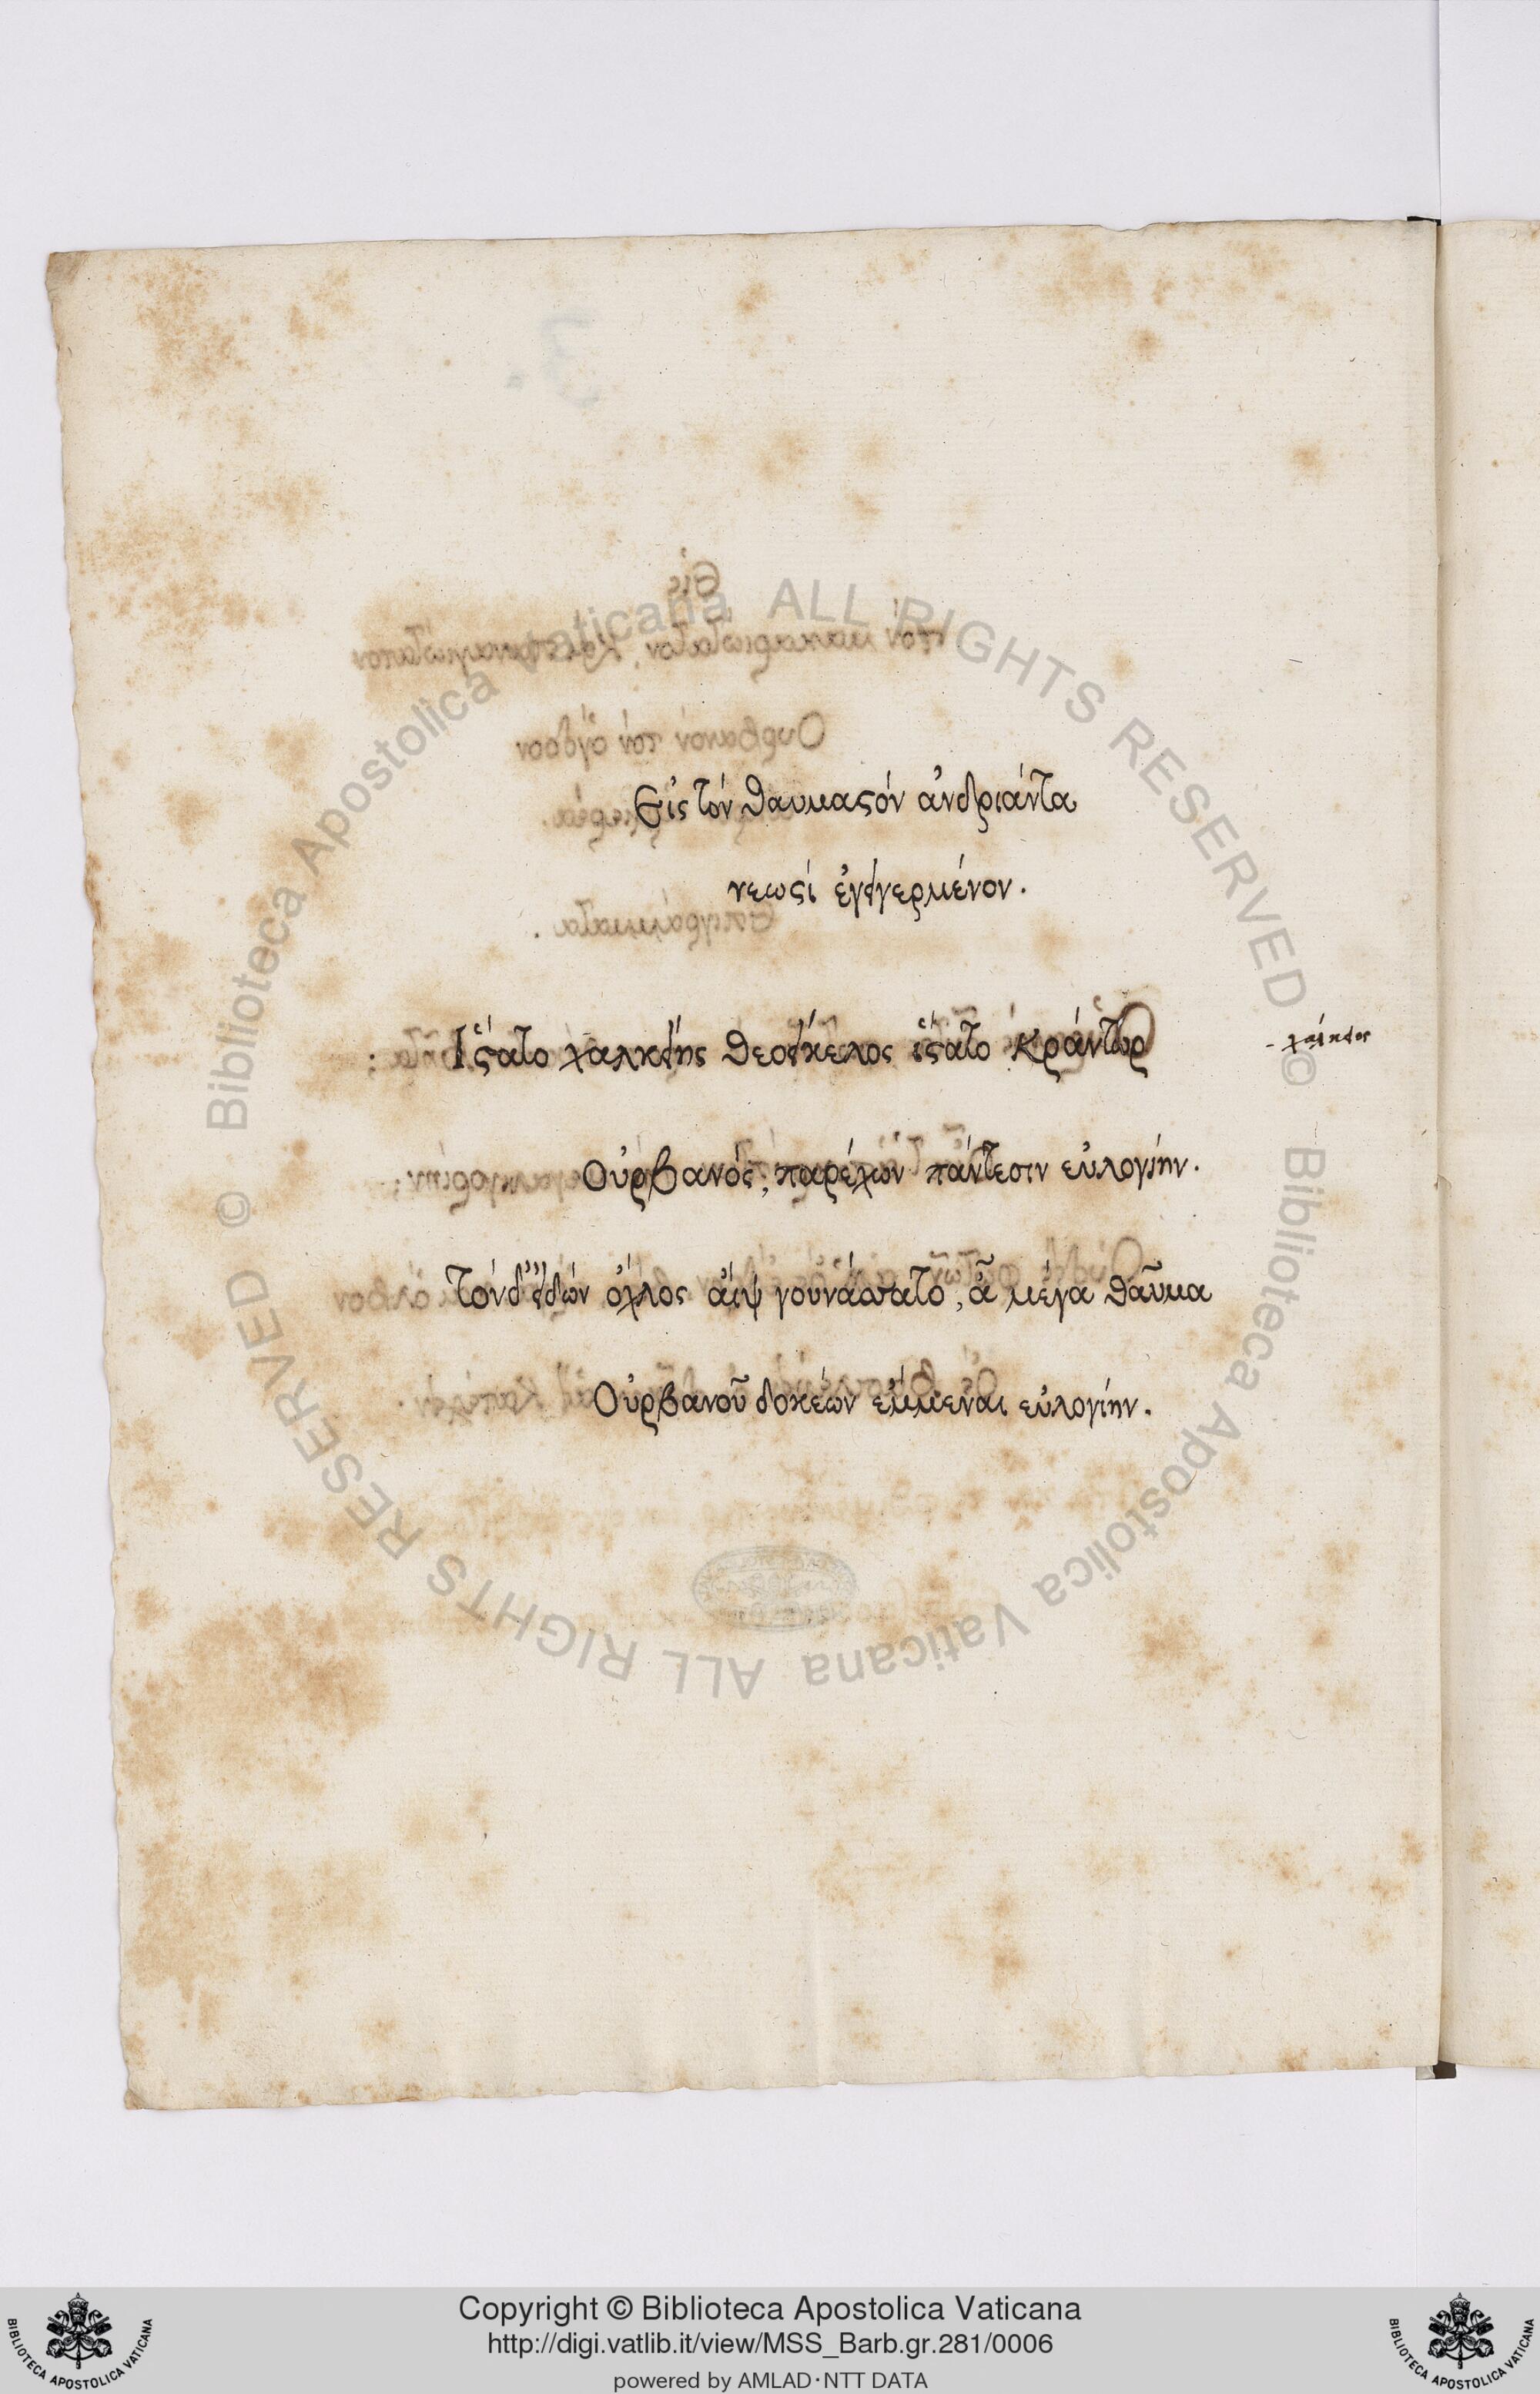 Εἰς τόν θαυμαϛόν ἀνδριάντα
νεωϛί ἐγηγερμένον.
Ἵϛατο χαλκείης θεοείκελος ἵϛατο κράντωρ
- χάλκεος
Οὐρβανός, παρέχων πάντεσιν εὐλογίην.
Τόνδ' εἰδών ὄχλος αἶψ γουνάσατο, ἆ μέγα θαῦμα
Οὐρβανοῦ δοκέων ἔμμεναι εὐλογίην.
BIBLIOTECA APOSTOLICA VATICANA
Copyright © Biblioteca Apostolica Vaticana
http://digi.vatlib.it/view/MSS_Barb.gr.281/0006
powered by AMLAD·NTT DATA
BIBLIOTECA APOSTOLICA VATICANA
© Biblioteca Apostolica Vaticana ALL RIGHTS RESERVED
© Biblioteca Apostolica Vaticana ALL RIGHTS RESERVED